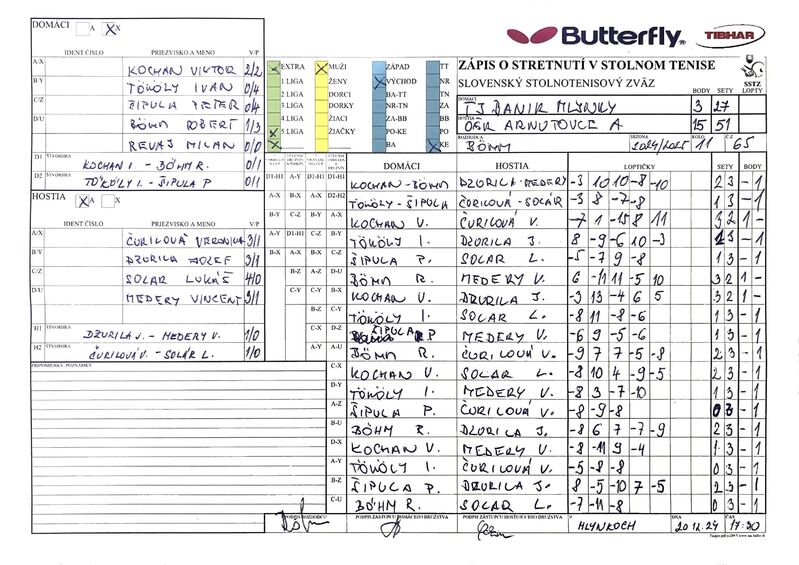 DOMÁCI A X
Butterfly TIBHAR
IDENT ČÍSLO PRIEZVISKO A MENO V/P
A/X KOCHAN VIKTOR 2/2
B/Y TÖKÖLY IVAN 0/4
C/Z ŠIPULA PETER 0/4
D/U BÖHM ROBERT 1/3
REVAJ MILAN 0/0
D1 ŠTVORHRA KOCHAN V. - BÖHM R. 0/1
D2 ŠTVORHRA TÖKÖLY I. - ŠIPULA P 0/1
HOSTIA X A X
IDENT ČÍSLO PRIEZVISKO A MENO V/P
A/X ČURILOVÁ VERONIKA 3/1
B/Y DZURILA JOZEF 3/1
C/Z SOLAR LUKÁŠ 4/0
D/U MEDERY VINCENT 3/1
H1 ŠTVORHRA DZURILA J. - MEDERY V. 1/0
H2 ŠTVORHRA ČURILOVÁ V. - SOLÁR L. 1/0
PRIPOMIENKY / POZNÁMKY
EXTRA MUŽI ZÁPAD TT
1 LIGA ŽENY VÝCHOD NR
2 LIGA DORCI BA-TT TN
3 LIGA DORKY NR-TN ZA
4 LIGA ŽIACI ZA-BB BB
5 LIGA ŽIAČKY PO-KE PO
BA KE
ZÁPIS O STRETNUTÍ V STOLNOM TENISE
SLOVENSKÝ STOLNOTENISOVÝ ZVÄZ
SSTZ
BODY SETY LOPTY
DOMÁCI TJ BANÍK MLYNKY 3 27
HOSTIA OÁR ARNUTOVCE A 15 51
ROZHODCA BÖHM SEZONA 2024/2025 KOLO 11 Č.Z 65
DOMÁCI HOSTIA LOPTIČKY SETY BODY
D1-H1 A-Y D1-H1 D1-H1 KOCHAN-BÖHM DZURILA-MEDERY -3 10 10 -8 -10 2 3 - 1
A-X B-X A-X D2-H2 TÖKÖLY - ŠIPULA ČURILOVÁ - SOLÁR -3 8 -7 -8 1 3 - 1
B-Y C-Z B-Y A-X KOCHAN V. ČURILOVÁ V. -7 1 -15 8 11 3 2 1 -
A-Y D1-H1 C-Z B-Y TÖKÖLY I. DZURILA J. 8 -9 -6 10 -3 3 - 1
B-X A-X B-X C-Z ŠIPULA P. SOLÁR L. -5 -7 9 -8 1 3 - 1
B-Z A-Z D-U BÖHM R. MEDERY V. 6 -11 11 -5 10 3 2 1 -
C-Y C-Y B-X KOCHAN V. DZURILA J. -3 13 -4 6 5 3 2 1 -
B-Z C-Y TÖKÖLY I. SOLAR L. -8 11 -8 -6 1 3 - 1
C-X D-Z ŠIPULA P MEDERY V. -6 9 -5 -6 1 3 - 1
A-Y A-U BÖHM R. ČURILOVÁ V. -9 7 7 -5 -8 2 3 - 1
C-X KOCHAN V. SOLAR L. -8 10 4 -9 -5 2 3 - 1
D-Y TÖKÖLY I. MEDERY V. -8 3 -7 -10 1 3 - 1
A-Z ŠIPULA P. ČURILOVÁ V. -8 -9 -8 0 3 - 1
B-U BÖHM R. DZURILA J. -8 6 7 -7 -9 2 3 - 1
D-X KOCHAN V. MEDERY V. -8 -11 9 -4 1 3 - 1
A-Y TÖKÖLY I. ČURILOVÁ V. -5 -8 -8 0 3 - 1
B-Z ŠIPULA P. DZURILA J. 8 -5 -10 7 -5 2 3 - 1
C-U BÖHM R. SOLAR L. -7 -11 -8 0 3 - 1
PODPIS ROZHODCU PODPIS ZÁSTUPCU DOMÁCEHO DRUŽSTVA PODPIS ZÁSTUPCU HOSŤUJÚCEHO DRUŽSTVA V MLYNKOCH DŇA 20.12.24 ČAS 17:30